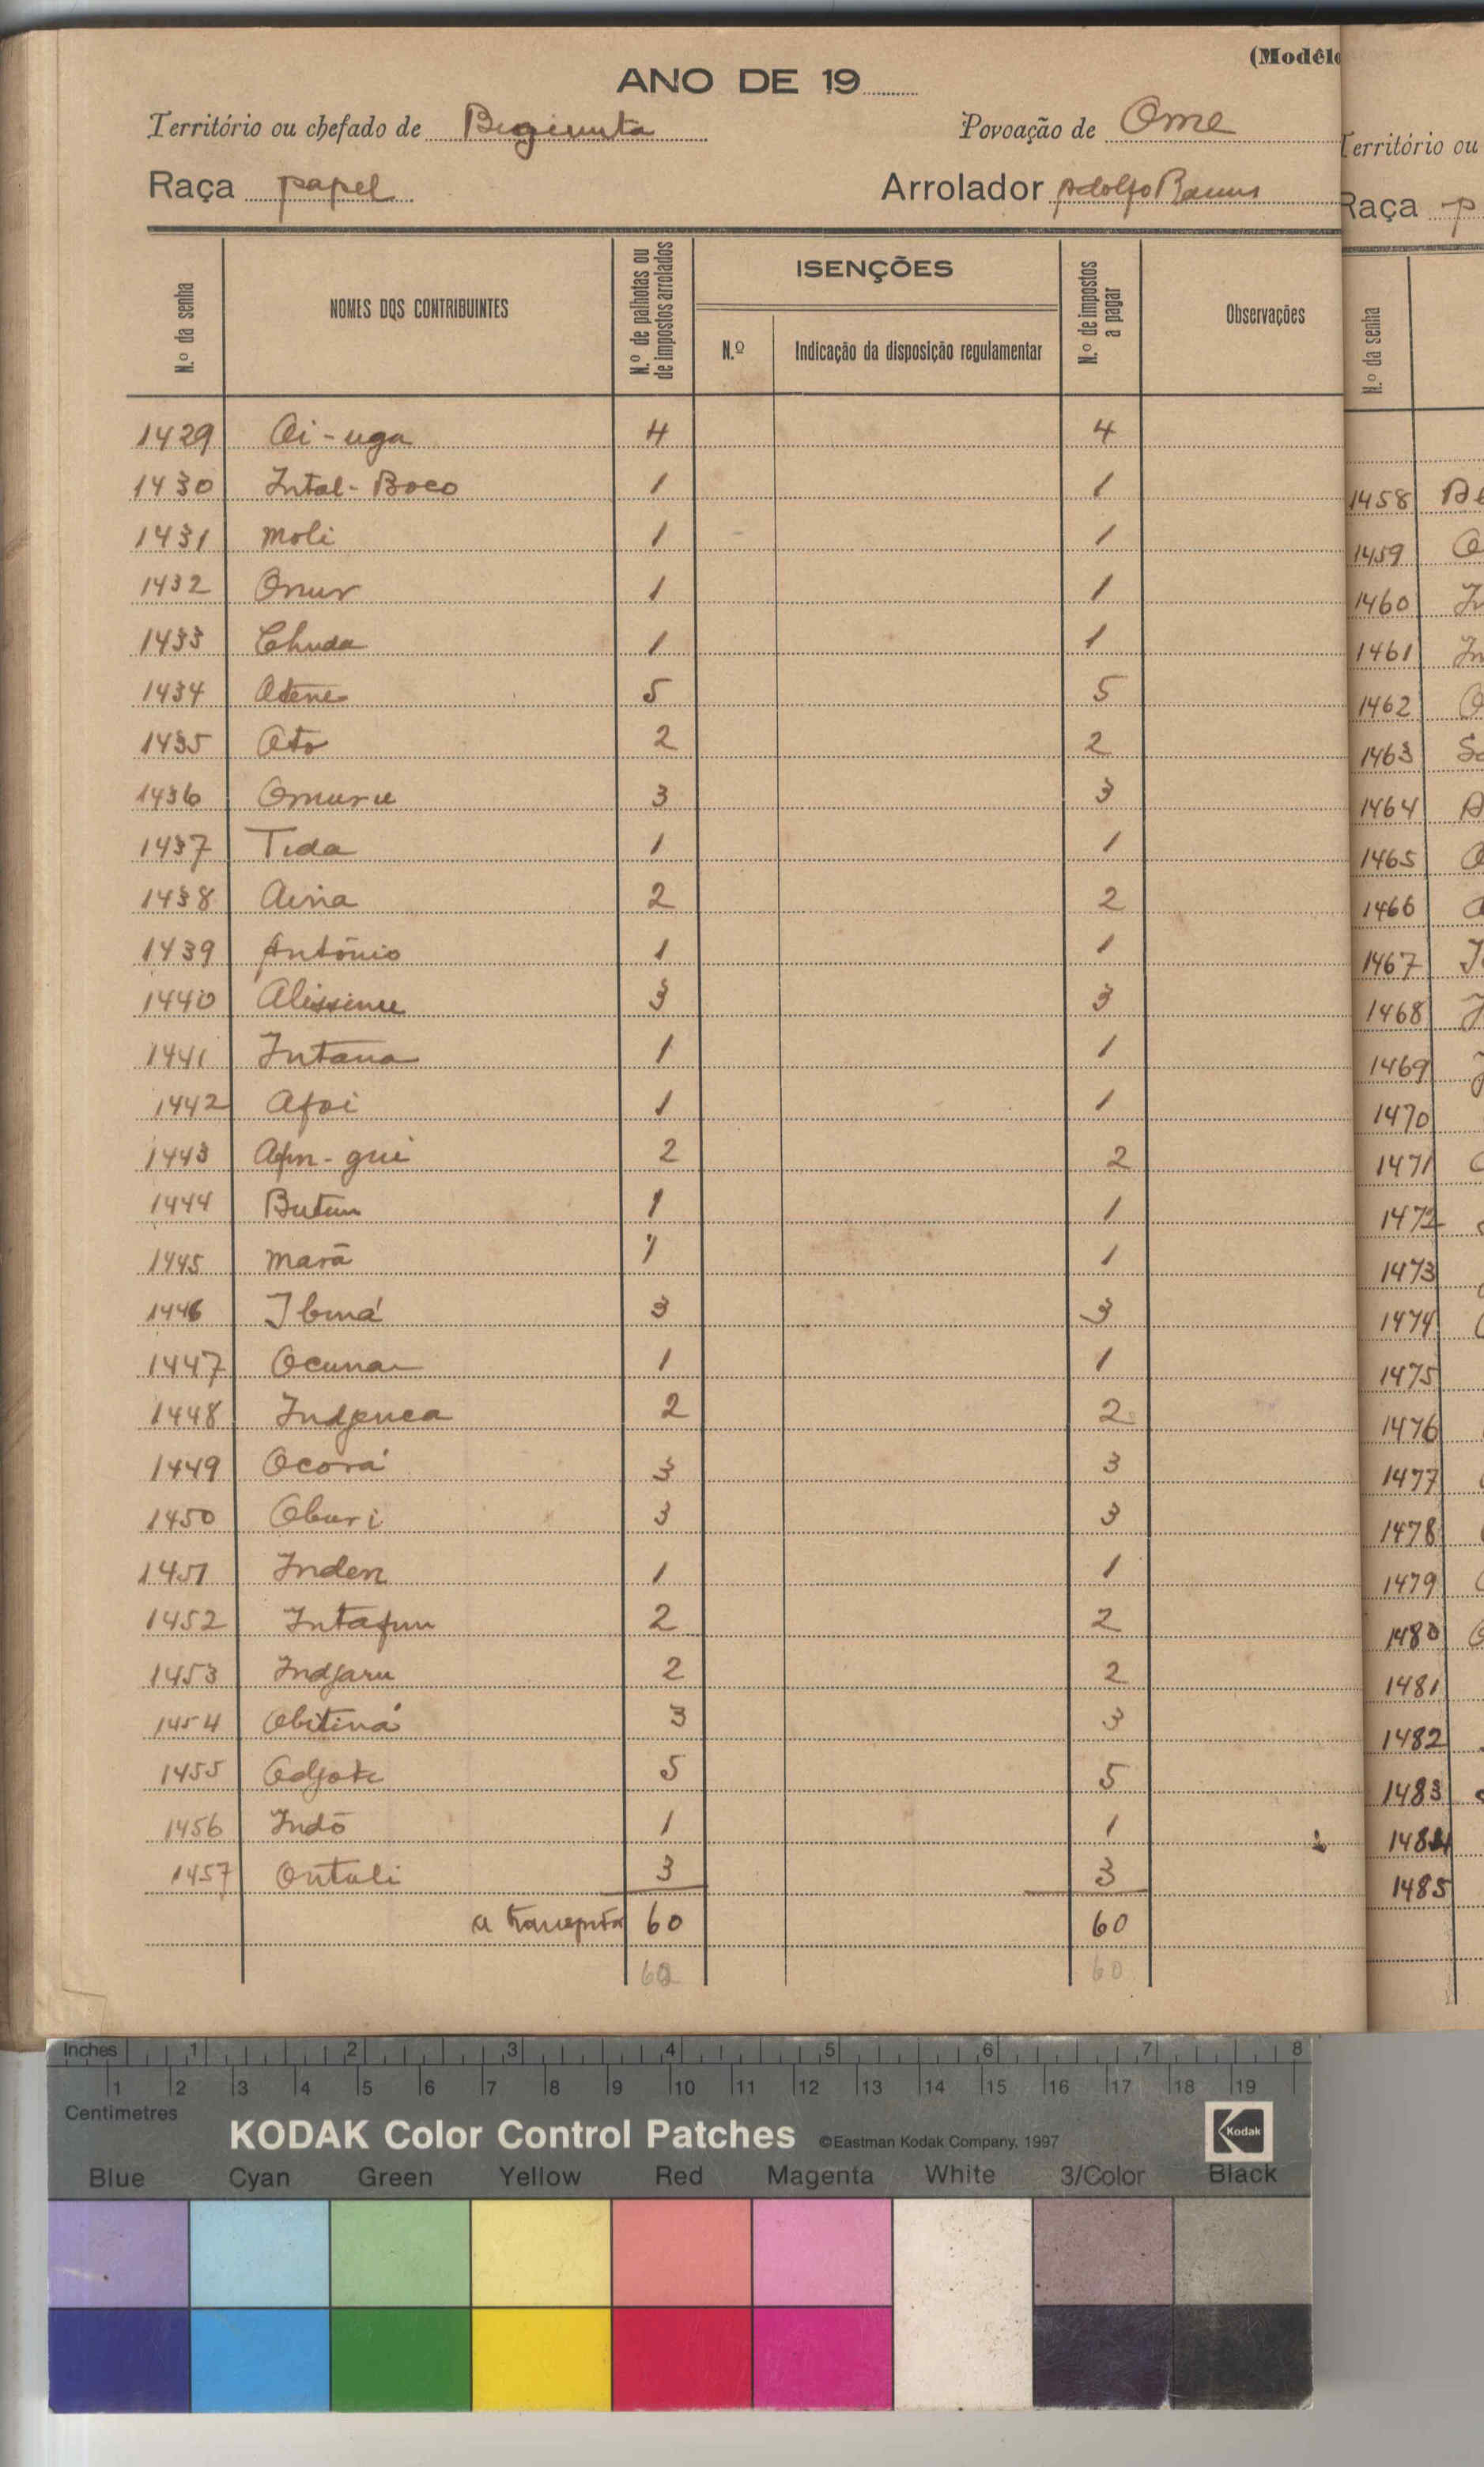 (Modêlo
ANO DE 19
Território ou chefado de Bigimita Povoação de Ome
Raça papel Arrolador Adolfo Ramos
N.º da senha NOMES DOS CONTRIBUINTES N.º de palhotas ou de impostos arrolados ISENÇÕES N.º Indicação da disposição regulamentar N.º de impostos a pagar Observações
1429 Oi-uga 4 4
1430 Intal-Boco 1 1
1431 Moli 1 1
1432 Onur 1 1
1433 Chuda 1 1
1434 Atene 5 5
1435 Oto 2 2
1436 Omuru 3 3
1437 Tida 1 1
1438 2 2
1439 António 1 1
1440 3 3
1441 Intana 1 1
1442 Afoi 1 1
1443 2 2
1444 Butun 1 1
1445 Marã 1 1
1446 3 3
1447 1 1
1448 2 2
1449 Ocorá 3 3
1450 Oburi 3 3
1451 Inden 1 1
1452 2 2
1453 Indjaru 2 2
1454 Obitiná 3 3
1455 5 5
1456 Indó 1 1
1457 Ontuli 3 3
a transporta 60 60
60 60
Território ou
Raça p
N.º da senha
1458
1459
1460
1461
1462
1463
1464
1465
1466
1467
1468
1469
1470
1471
1472
1473
1474
1475
1476
1477
1478
1479
1480
1481
1482
1483
1484
1485
Inches 1 2 3 4 5 6 7 8
1 2 3 4 5 6 7 8 9 10 11 12 13 14 15 16 17 18 19
Centimetres
KODAK Color Control Patches ©Eastman Kodak Company, 1997 Kodak
Blue Cyan Green Yellow Red Magenta White 3/Color Black